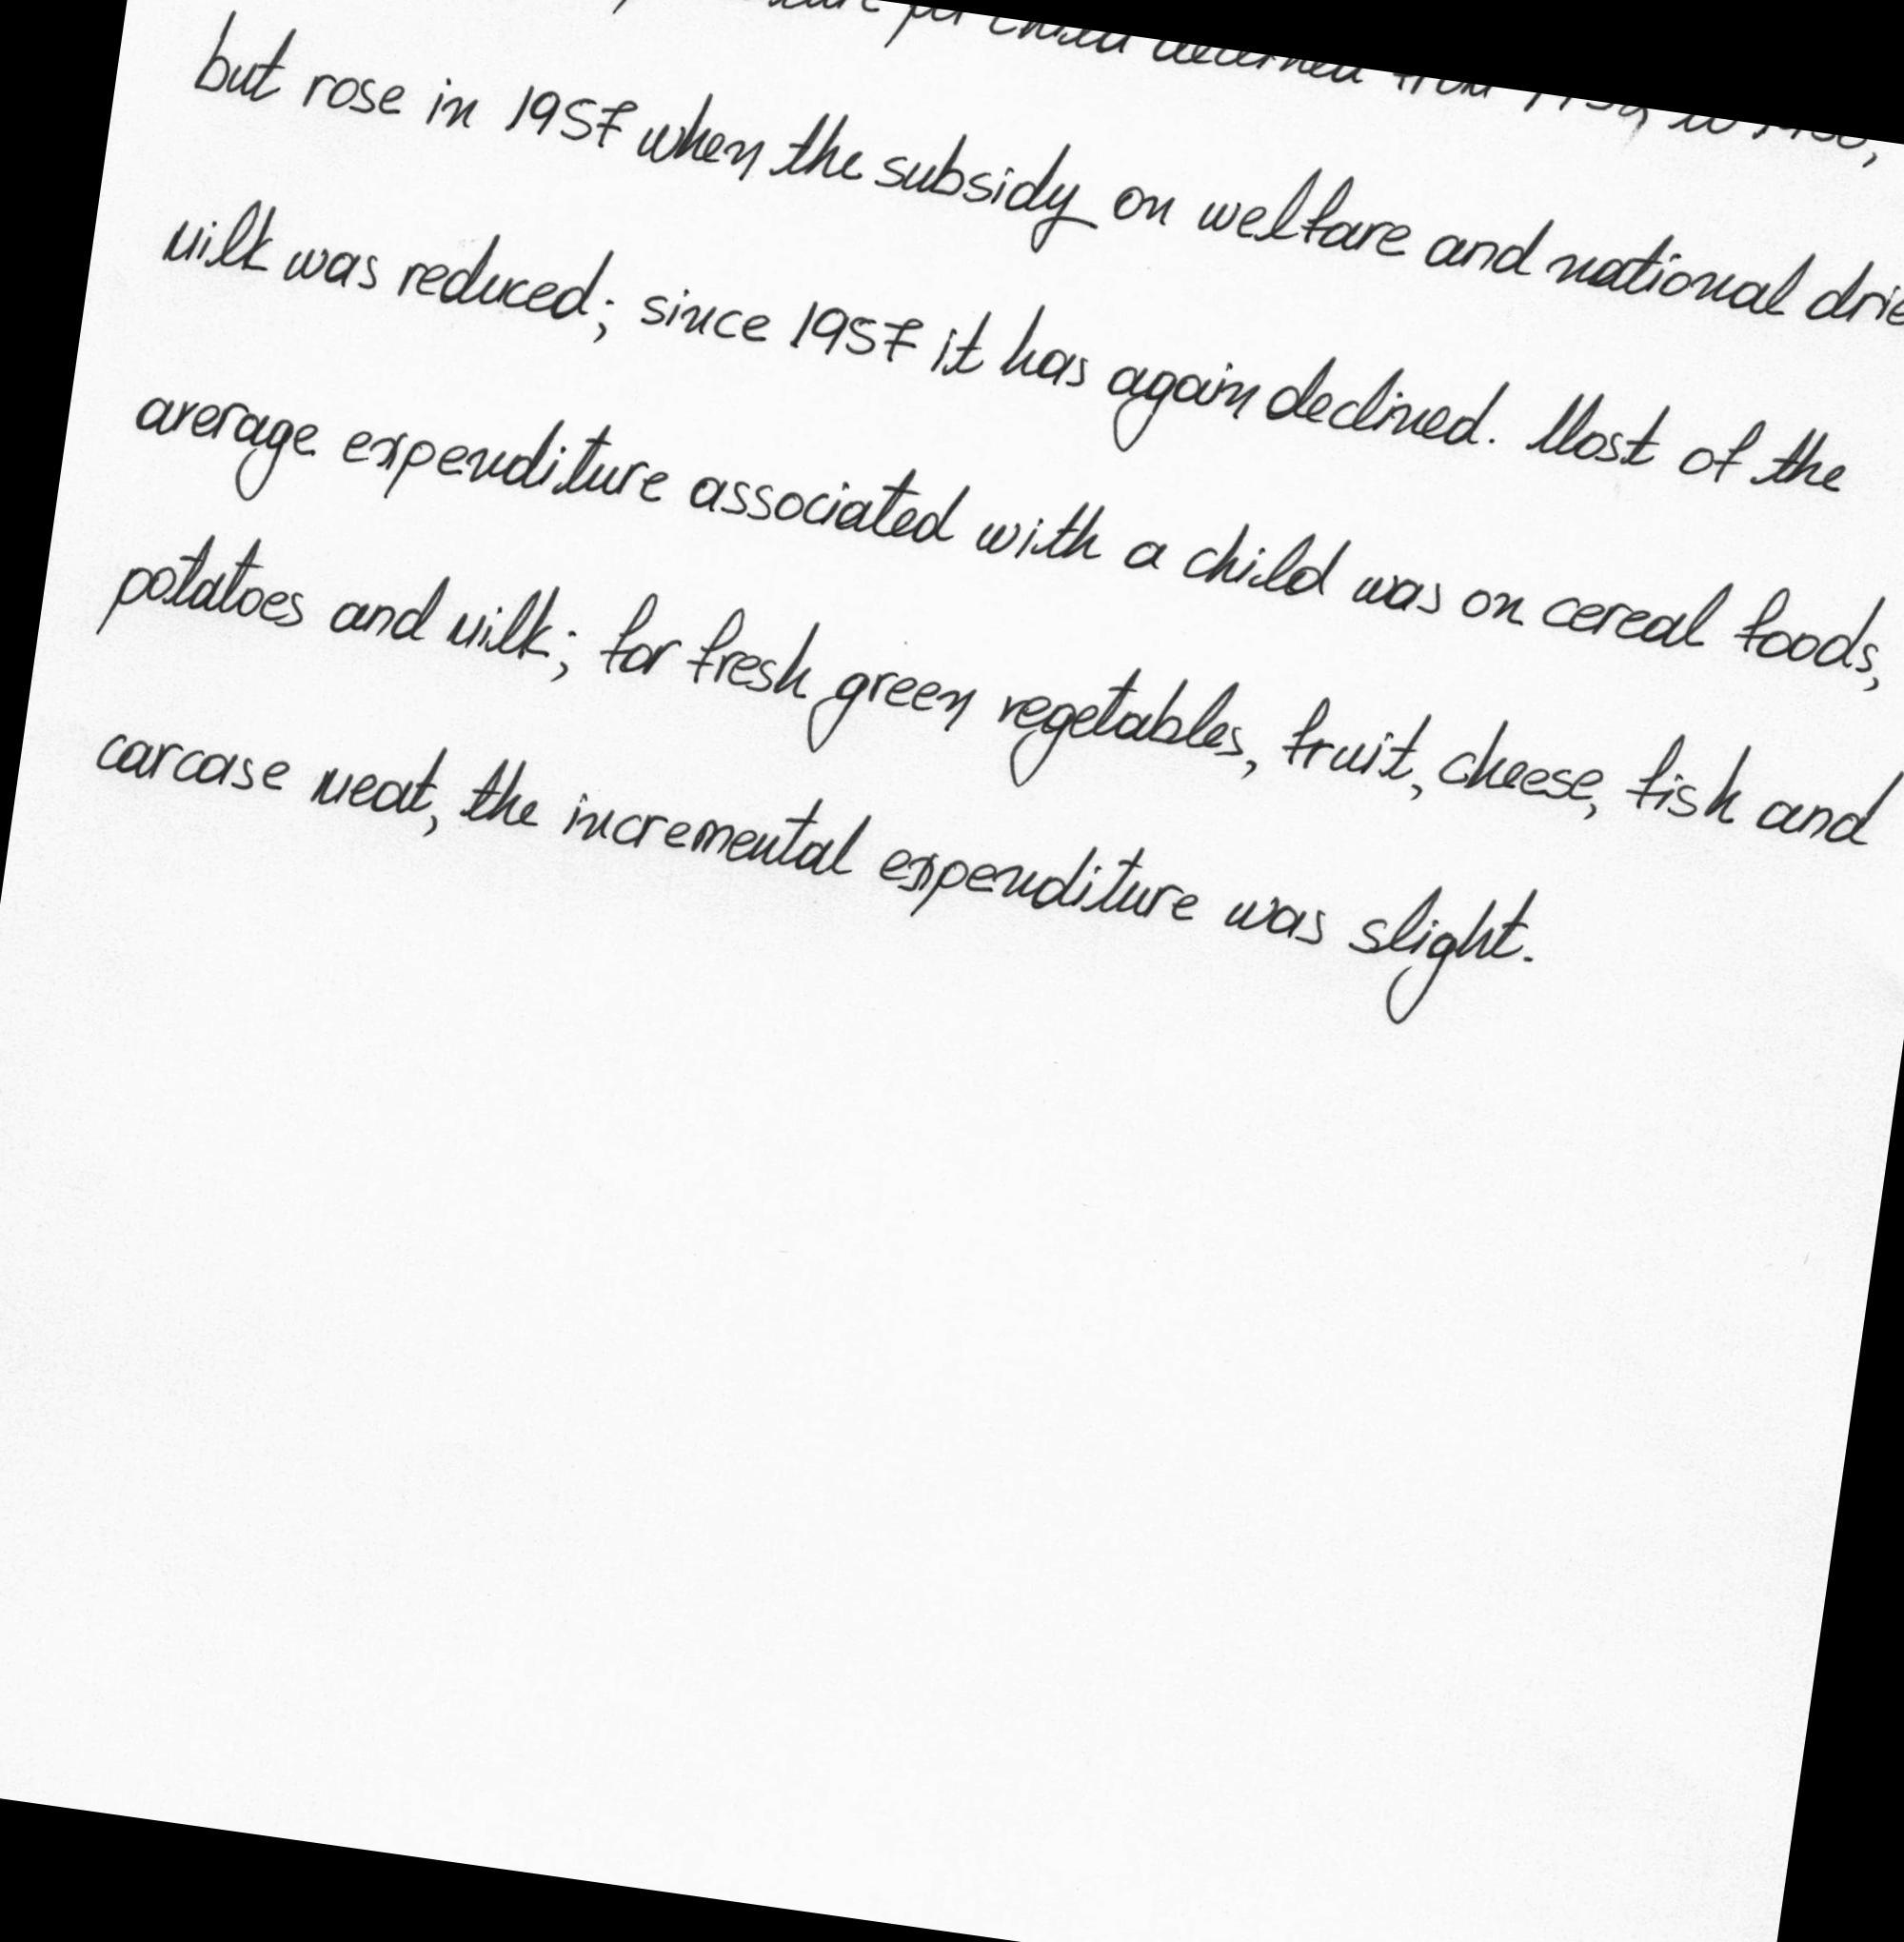 per child declined from
but rose in 1957 when the subsidy on welfare and national
milk was reduced; since 1957 it has again declined. Most of the
average expenditure associated with a child was on cereal foods,
potatoes and milk; for fresh green vegetables, fruit, cheese, fish and
carcase meat, the incremental expenditure was slight.